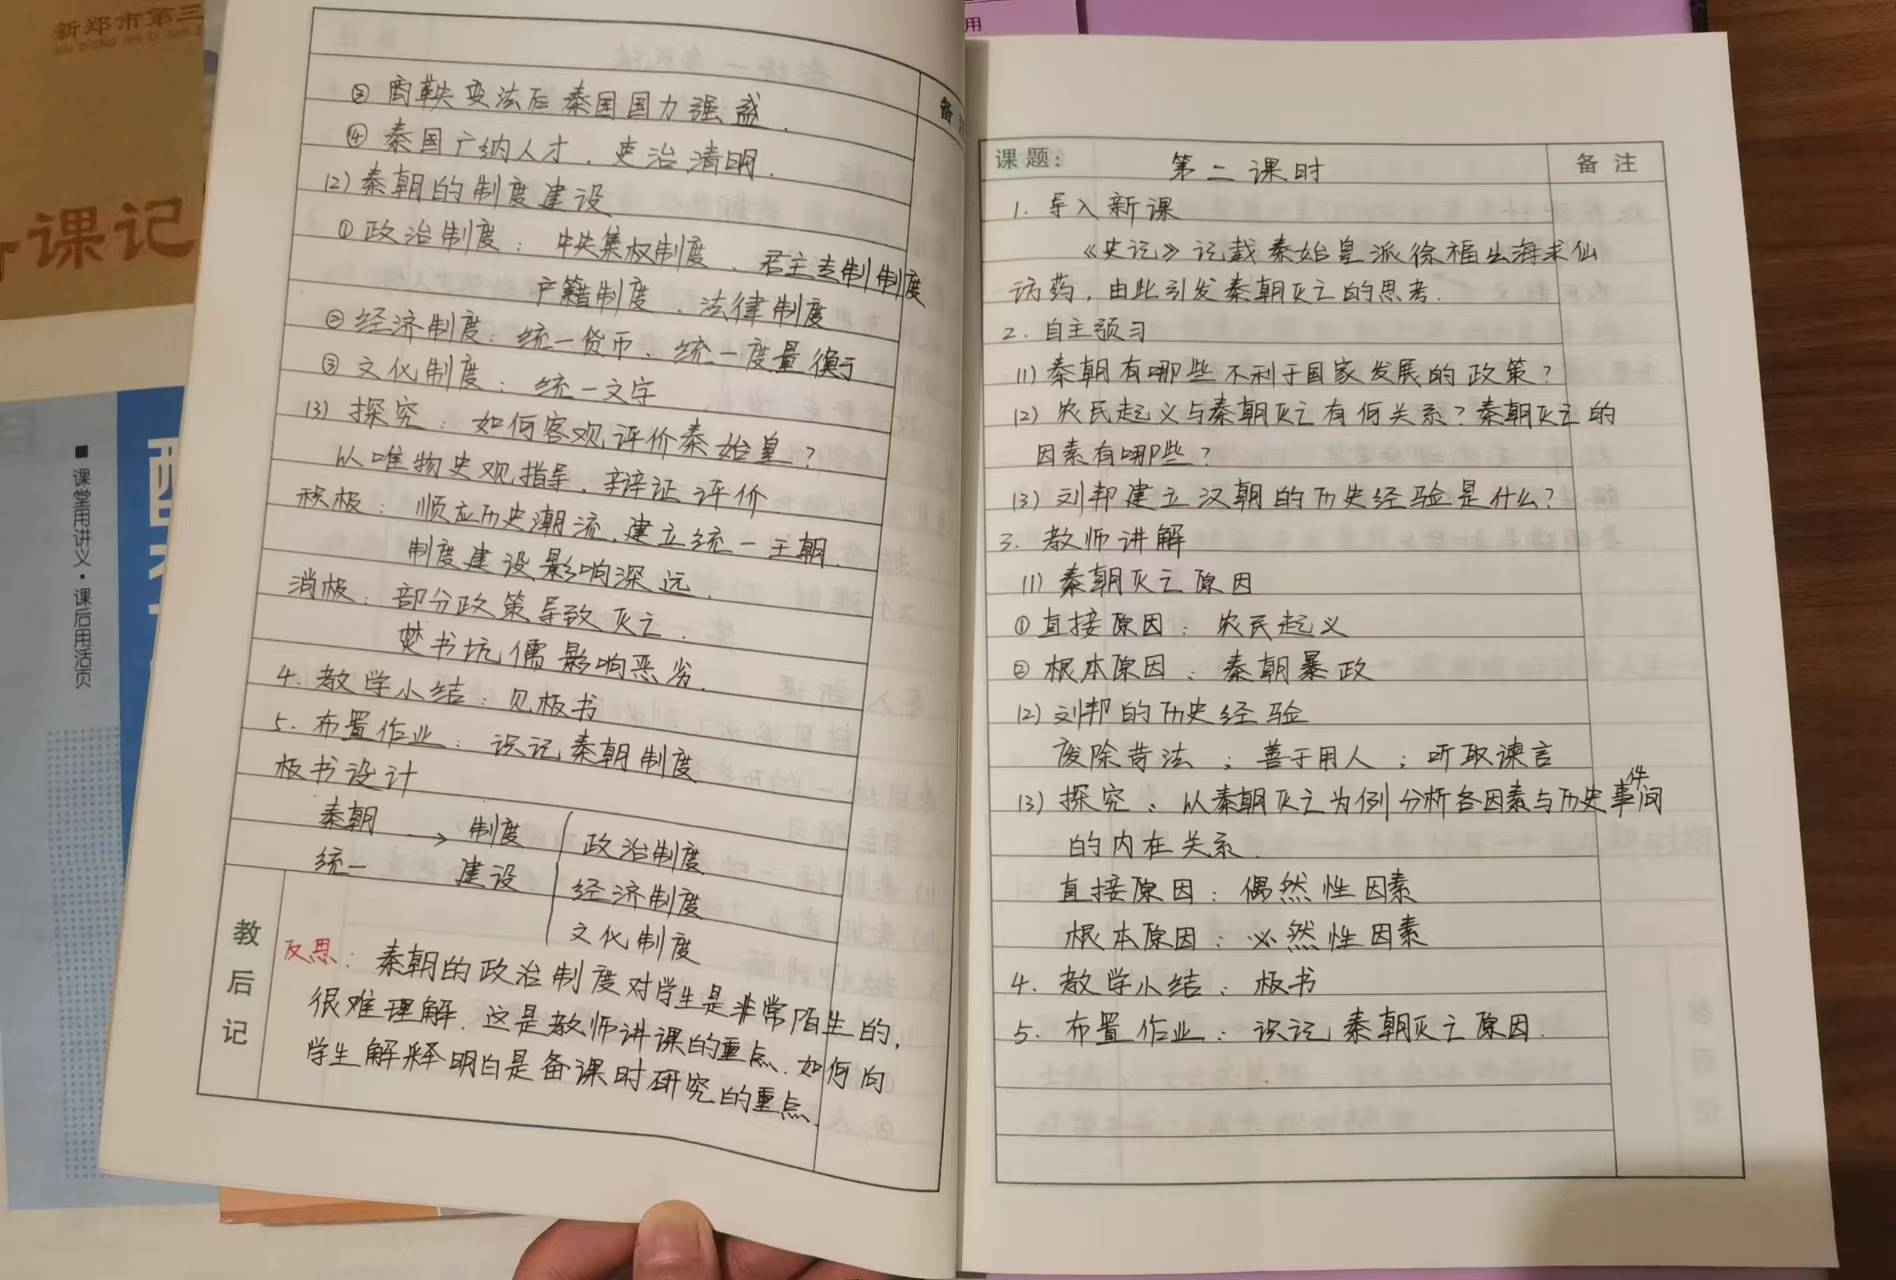 新郑市第三
课记
课堂用讲义·课后用活页
用
备
③ 商鞅变法后秦国国力强盛.
④ 秦国广纳人才,吏治清明.
(2) 秦朝的制度建设
① 政治制度:中央集权制度、君主专制制度
户籍制度、法律制度
② 经济制度:统一货币、统一度量衡
③ 文化制度:统一文字
(3) 探究:如何客观评价秦始皇?
从唯物史观指导,辩证评价
积极:顺应历史潮流,建立统一王朝.
制度建设影响深远.
消极:部分政策导致灭亡.
焚书坑儒影响恶劣.
4. 教学小结:见板书
5. 布置作业:识记秦朝制度
板书设计
秦朝 → 制度 政治制度
统一 建设 经济制度
文化制度
教后记
反思:秦朝的政治制度对学生是非常陌生的,
很难理解.这是教师讲课的重点.如何向
学生解释明白是备课时研究的重点.
课题: 第二课时 备注
1. 导入新课
《史记》记载秦始皇派徐福出海求仙
药,由此引发秦朝灭亡的思考.
2. 自主预习
(1) 秦朝有哪些不利于国家发展的政策?
(2) 农民起义与秦朝灭亡有何关系?秦朝灭亡的
因素有哪些?
(3) 刘邦建立汉朝的历史经验是什么?
3. 教师讲解
(1) 秦朝灭亡原因
① 直接原因:农民起义
② 根本原因:秦朝暴政
(2) 刘邦的历史经验
废除苛法;善于用人;听取谏言
(3) 探究:以秦朝灭亡为例分析各因素与历史事件间
的内在关系.
直接原因:偶然性因素
根本原因:必然性因素
4. 教学小结:板书
5. 布置作业:识记秦朝灭亡原因.